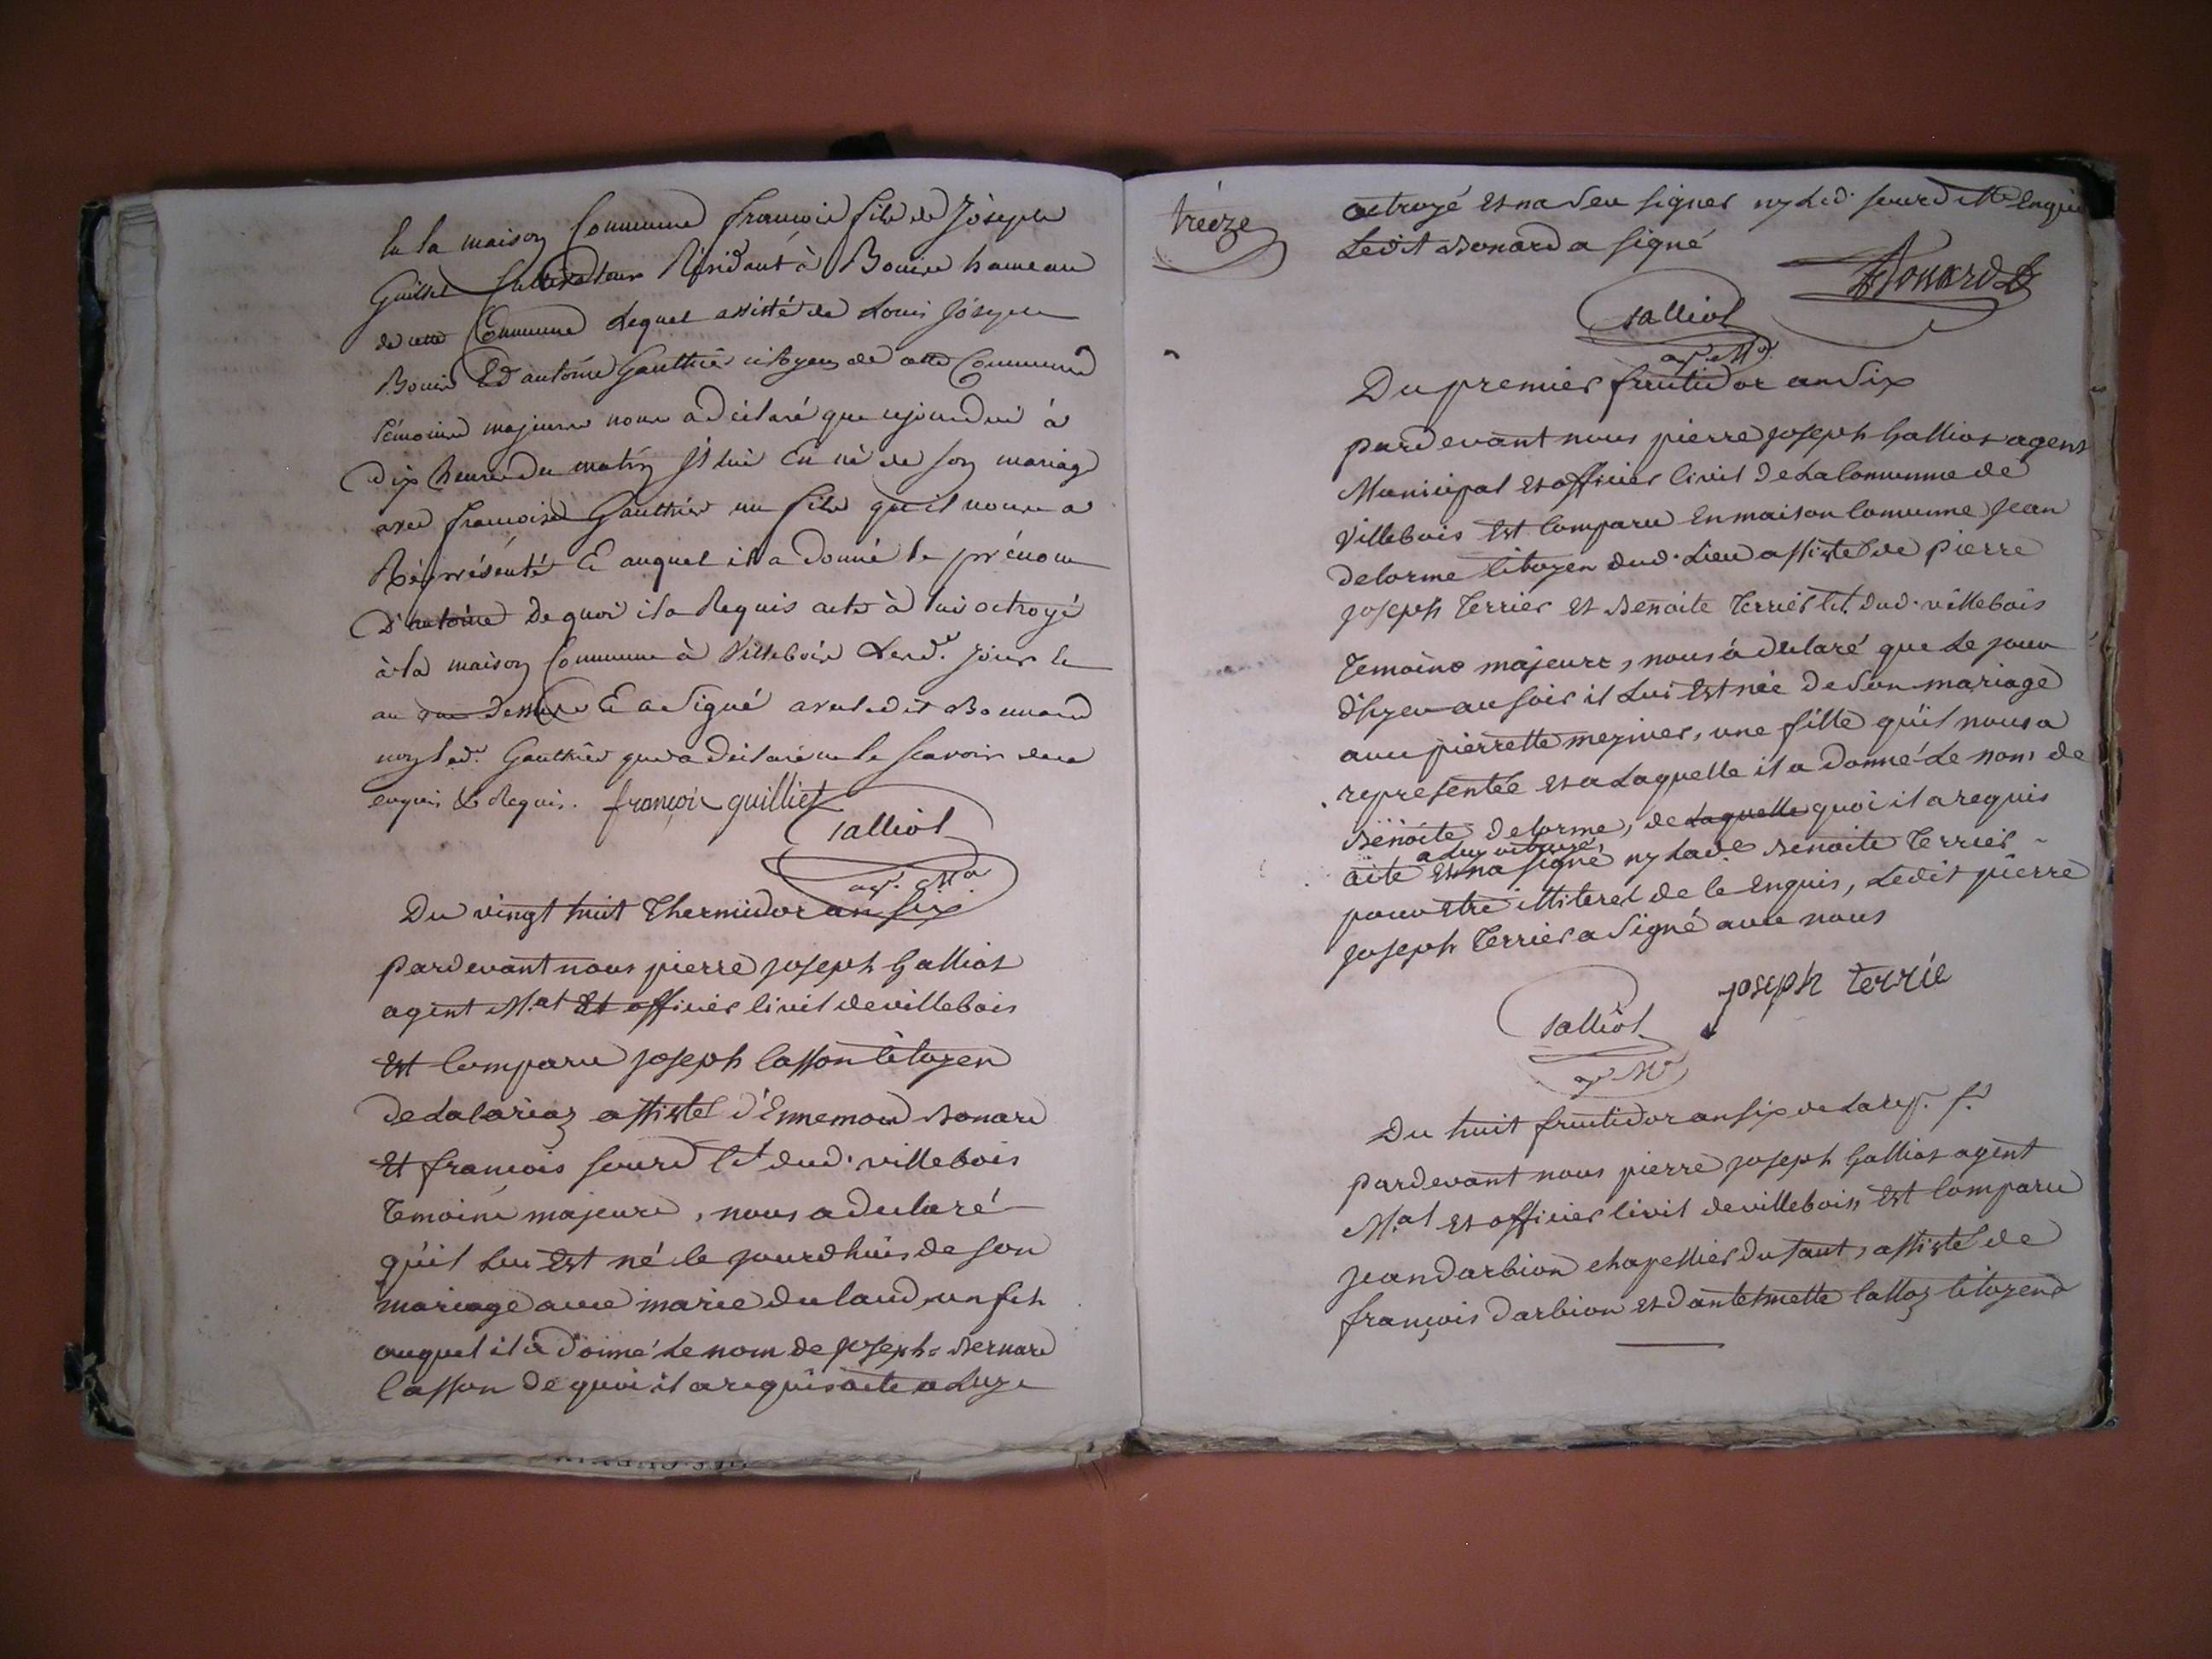 En la maison Commune francois fils de Joseph
Guillet Cultivateur Résidant à Bouis hameau
de cette Commune Lequel assisté de Louis Joseph
Bouis Et antoine Gauthier citoyens de cette Commune
témoins majeurs nous a déclaré que ajourdui à
dix heures du matin Il lui En né de son mariage
avec francoise Gauthier un fils qu'il nous a
Réprésenté E auquel il a donné le prénom
D'antoine De quoi il a Requis acte à lui octroyé
à la maison Commune à Villebois Lesd. jour
au que Dessus E a Signé avec ledit Bonnard
non led. Gauthier qui a déclaré ne le scavoir de ce
enquis & Requis. françois guilliet
Galliot
agt. Mal
Du vingt huit Thermidor an six
pardevant nous pierre joseph Galliot
agent M.al Et officier Civil de villebois
Est Comparu joseph Casson Citoyen
de Lalariaz assisté d'Ennemond Bonard
Et francois sourd Cit dud. villebois
Temoins majeurs, nous a déclaré
qu'il Lui Est né le jourdhuis de son
mariage avec marie dulaud, un fils
auquel il a donné Le nom de joseph=Bernard
Casson De quoi il a requis acte a Luy
treize
octroyé Et na sçu signer ny Led. sourd de ce Enquis
Ledit Bonard a signé
Bonard
Galliot
agt. Mal
Du premier fructidor an Six
pardevant nous pierre joseph Galliot agent
Municipal Et officier Civil De La Commune de
Villebois Est Comparu En maison Commune Jean
delorme Citoyen dud. Lieu assisté de Pierre
joseph Terrier Et Benoite Terrier Cit. dud. villebois
Temoins majeurs, nous à déclaré que Le jour
d'hyer au soir il Lui Est née De son mariage
avec pierrette meynier, une fille qu'il nous a
representée Et a Laquelle il a donné Le nom de
Benoite delorme, de Laquelle quoi il a requis
a Luy octroyé,
acte Et na signé ny Lade Benoite Terrier
pour Etre illiterés de Ce Enquis, Ledit pierre
joseph Terrier a signé avec nous
joseph terrie
Galliot
agt Mal
Du huit fructidor an six de La rep. f.
pardevant nous pierre joseph Galliot agent
M.al Et officier Civil de villebois Est Comparu
jean darbion chapellier du saut, assisté de
françois darbion Et d'antelmette Calloz Citoyens